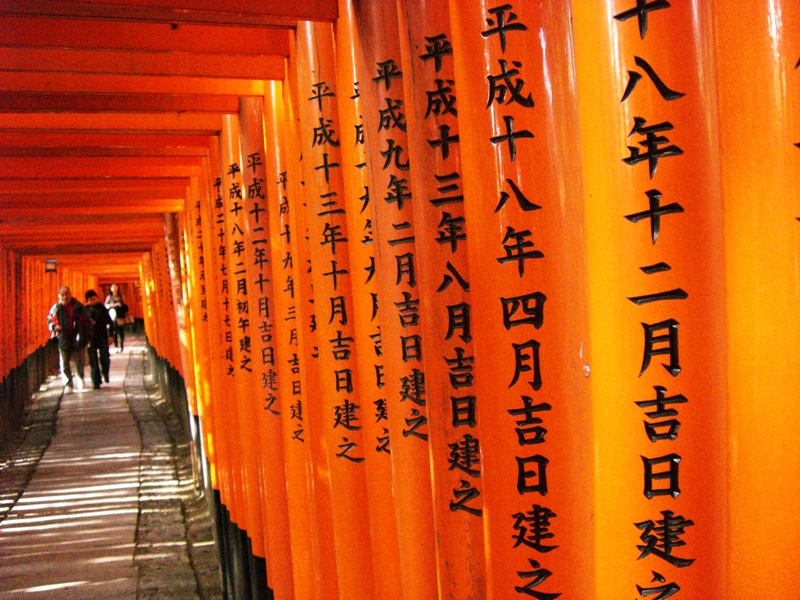 十八年十二月吉日建之
平成十八年四月吉日建之
平成十三年八月吉日建之
平成九年二月吉日建之
月吉日建之
平成十三年十月吉日建之
平成十九年三月吉日建之
平成十二年十月吉日建之
平成十八年二月初午建之
平成二十年七月十七日建之